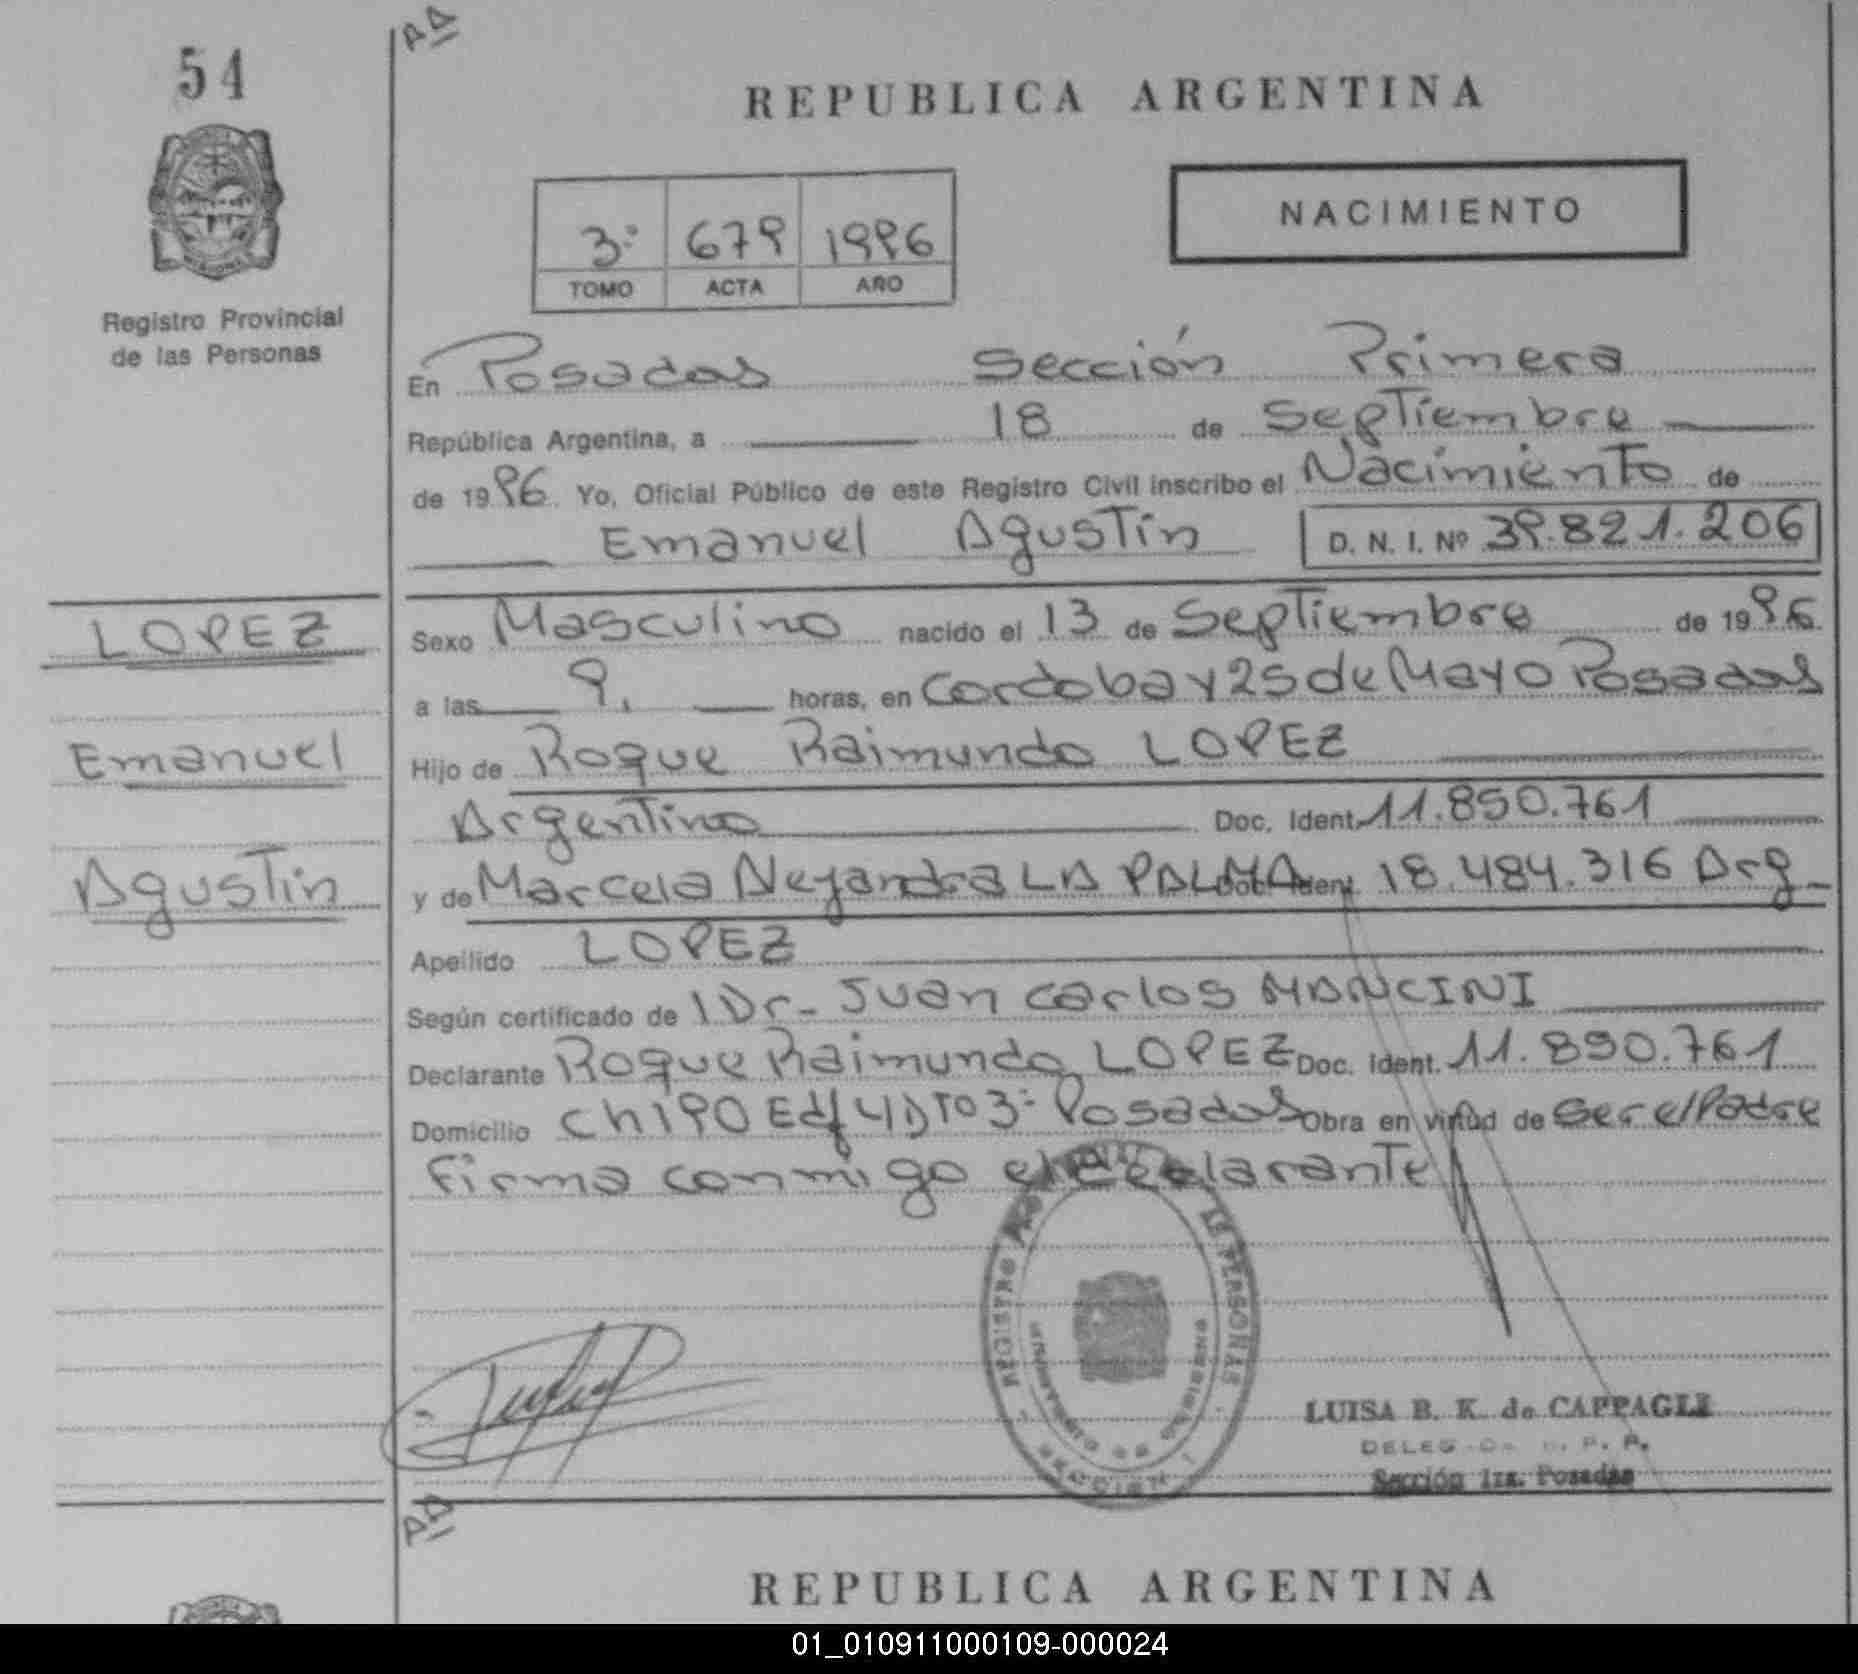 54
REPUBLICA ARGENTINA
NACIMIENTO
3º 679 1996
TOMO ACTA AÑO
Registro Provincial
de las Personas
En Posadas Sección Primera
República Argentina, a 18 de Septiembre
de 1996. Yo, Oficial Público de este Registro Civil inscribo el Nacimiento de
Emanuel Agustin D. N. I. Nº 39.821.206
LOPEZ
Emanuel
Agustin
Sexo Masculino nacido el 13 de Septiembre de 1996.
a las 9. horas, en Cordoba y 25 de Mayo Posadas
Hijo de Roque Raimundo LOPEZ
Argentino Doc. Ident. 11.890.761
y de Marcela Alejandra LA PALMA Doc. Ident. 18.484.316 Arg
Apellido LOPEZ
Según certificado de Dr- Juan Carlos MANCINI
Declarante Roque Raimundo LOPEZ Doc. Ident. 11.890.761
Domicilio Ch 190 Edf 4 DTO 3º Posadas Obra en virtud de ser el Padre
Firma conmigo el declarante
REGISTRO LAS PERSONAS
LUISA B. K. de CAPPAGLI
Sección 1ra. Posadas
REPUBLICA ARGENTINA
01_010911000109-000024